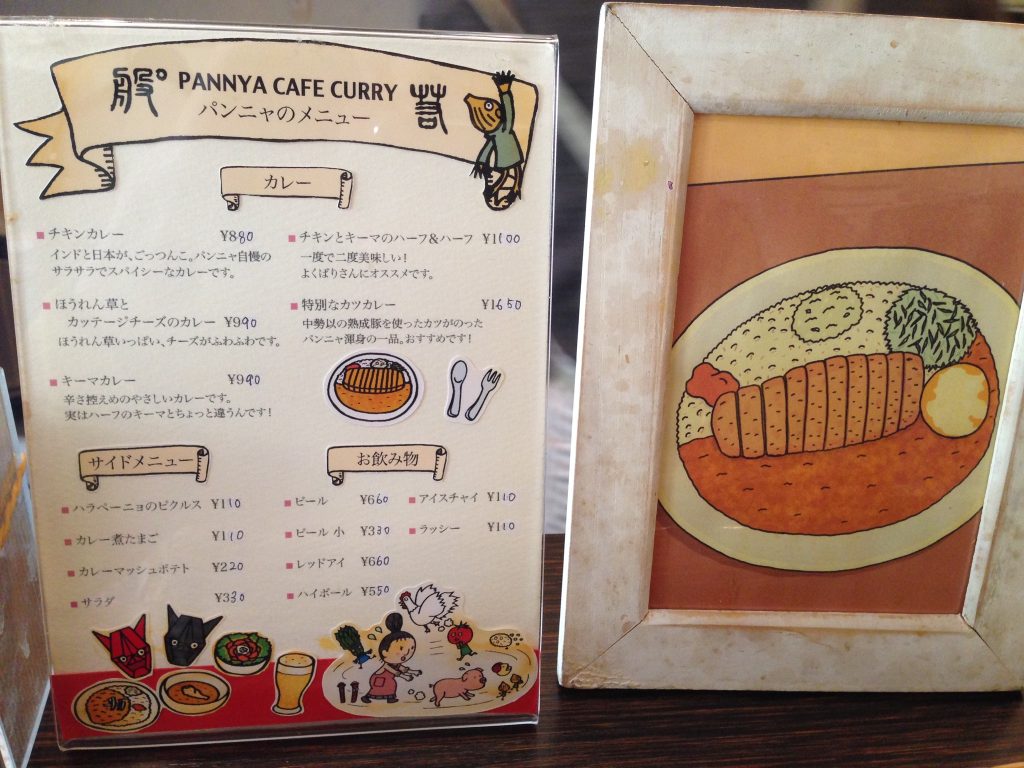 般°
PANNYA CAFE CURRY
パンニャのメニュー
若
カレー
チキンカレー ¥880
インドと日本が、ごっつんこ。パンニャ自慢の
サラサラでスパイシーなカレーです。
ほうれん草と
カッテージチーズのカレー ¥990
ほうれん草いっぱい、チーズがふわふわです。
キーマカレー ¥990
辛さ控えめのやさしいカレーです。
実はハーフのキーマとちょっと違うんです!
チキンとキーマのハーフ&ハーフ ¥1100
一度で二度美味しい!
よくばりさんにオススメです。
特別なカツカレー ¥1650
中勢以の熟成豚を使ったカツがのった
パンニャ渾身の一品。おすすめです!
サイドメニュー
ハラペーニョのピクルス ¥110
カレー煮たまご ¥110
カレーマッシュポテト ¥220
サラダ ¥330
お飲み物
ビール ¥660
ビール 小 ¥330
レッドアイ ¥660
ハイボール ¥550
アイスチャイ ¥110
ラッシー ¥110